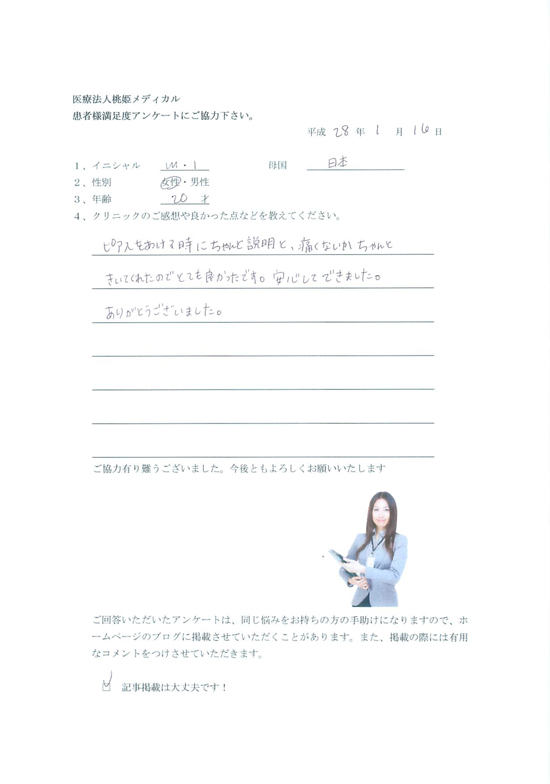 医療法人桃姫メディカル
患者様満足度アンケートにご協力下さい。
平成 28 年 1 月 16 日
1、イニシャル M・I 母国 日本
2、性別 女性・男性
3、年齢 20 才
4、クリニックのご感想や良かった点などを教えてください。
ピアスをあける時にちゃんと説明と、痛くないか ちゃんと
きいてくれたのでとても良かったです。安心してできました。
ありがとうございました。
ご協力有り難うございました。今後ともよろしくお願いいたします
ご回答いただいたアンケートは、同じ悩みをお持ちの方の手助けになりますので、ホ
ームページのブログに掲載させていただくことがあります。また、掲載の際には有用
なコメントをつけさせていただきます。
記事掲載は大丈夫です！